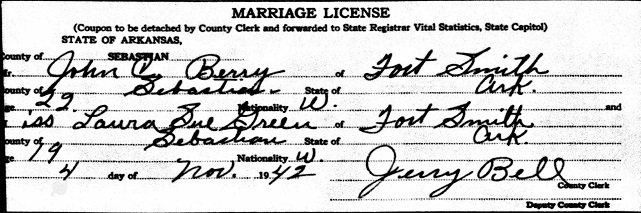 MARRIAGE LICENSE
(Coupon to be detached by County Clerk and forwarded to State Registrar Vital Statistics, State Capitol)
STATE OF ARKANSAS,
County of SEBASTIAN
Mr. John C. Berry of Fort Smith
County of Sebastian State of Ark.
age 22 Nationality W. and
Miss Laura Sue Green of Fort Smith
County of Sebastian State of Ark.
age 19 Nationality W.
4 day of Nov. 1942 Jerry Bell
County Clerk
Deputy County Clerk